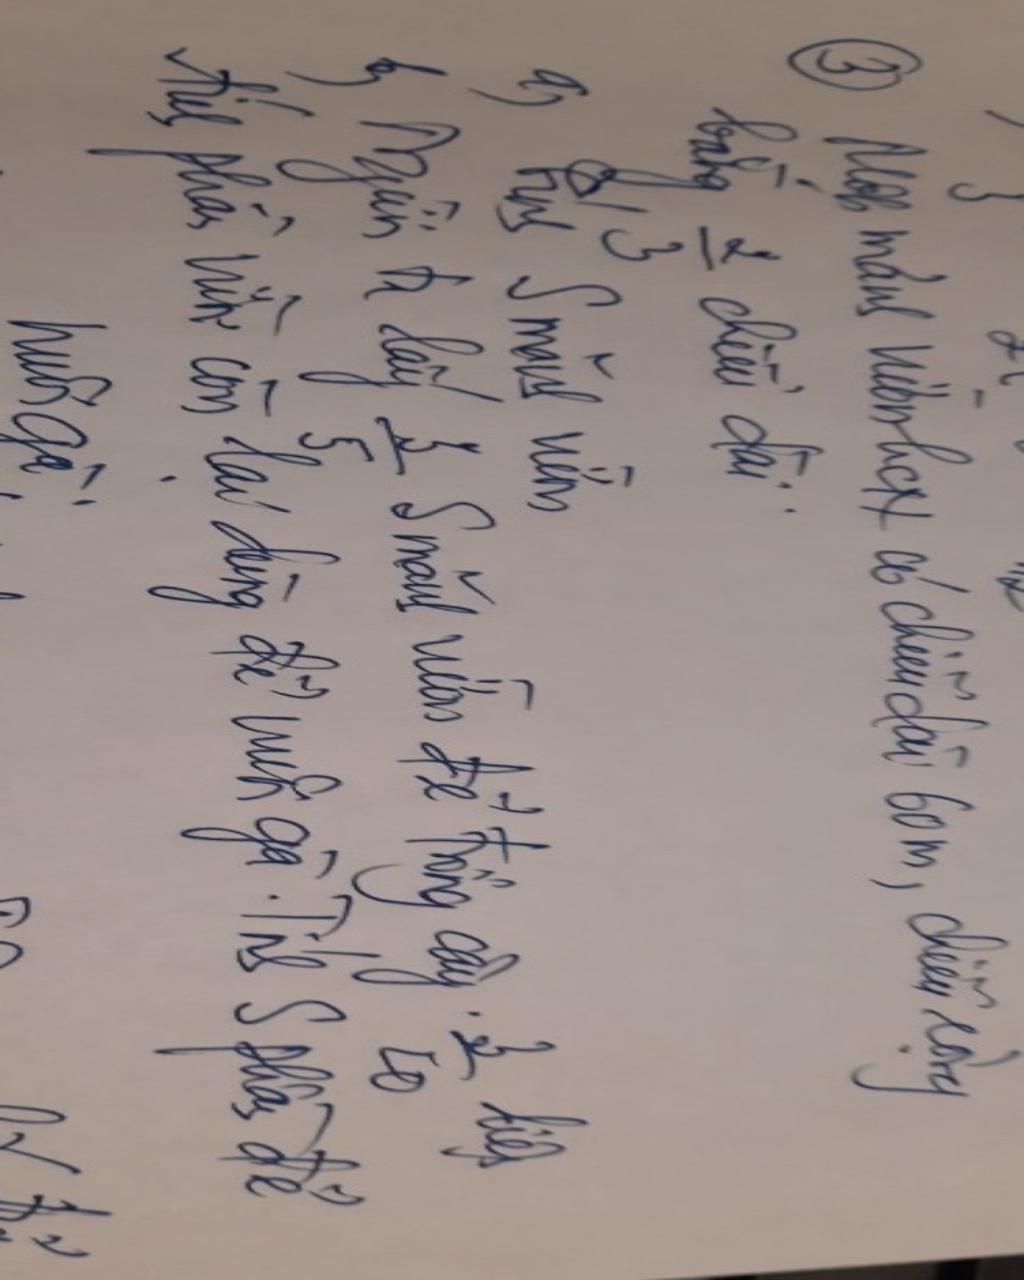 ③ Một mảnh vườn hcn có chiều dài 60 m, chiều rộng
bằng 2/3 chiều dài.
a) Tính S mảnh vườn
b) Người ta lấy 2/5 S mảnh vườn để trồng cây. 3/10 diện
tích phần vườn còn lại dùng để nuôi gà. Tính S phần để
nuôi gà.